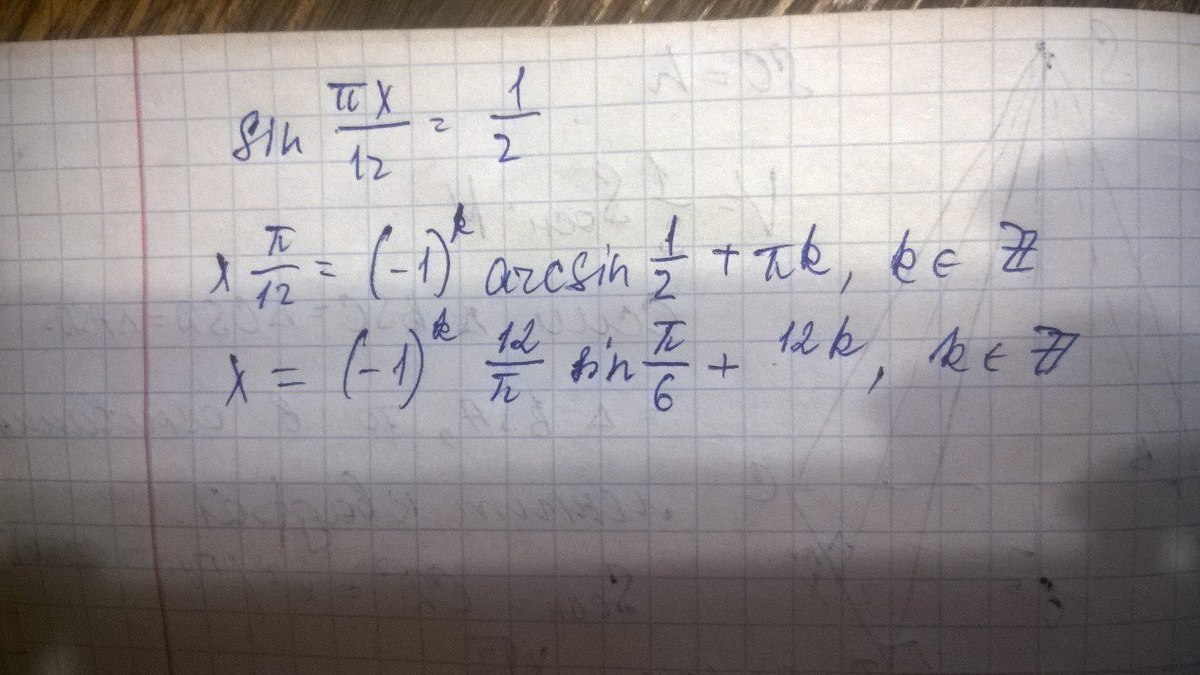 sin πx/12 = 1/2
x π/12 = (-1)^k arcsin 1/2 + πk, k ∈ ℤ
x = (-1)^k 12/π sin π/6 + 12k, k ∈ ℤ